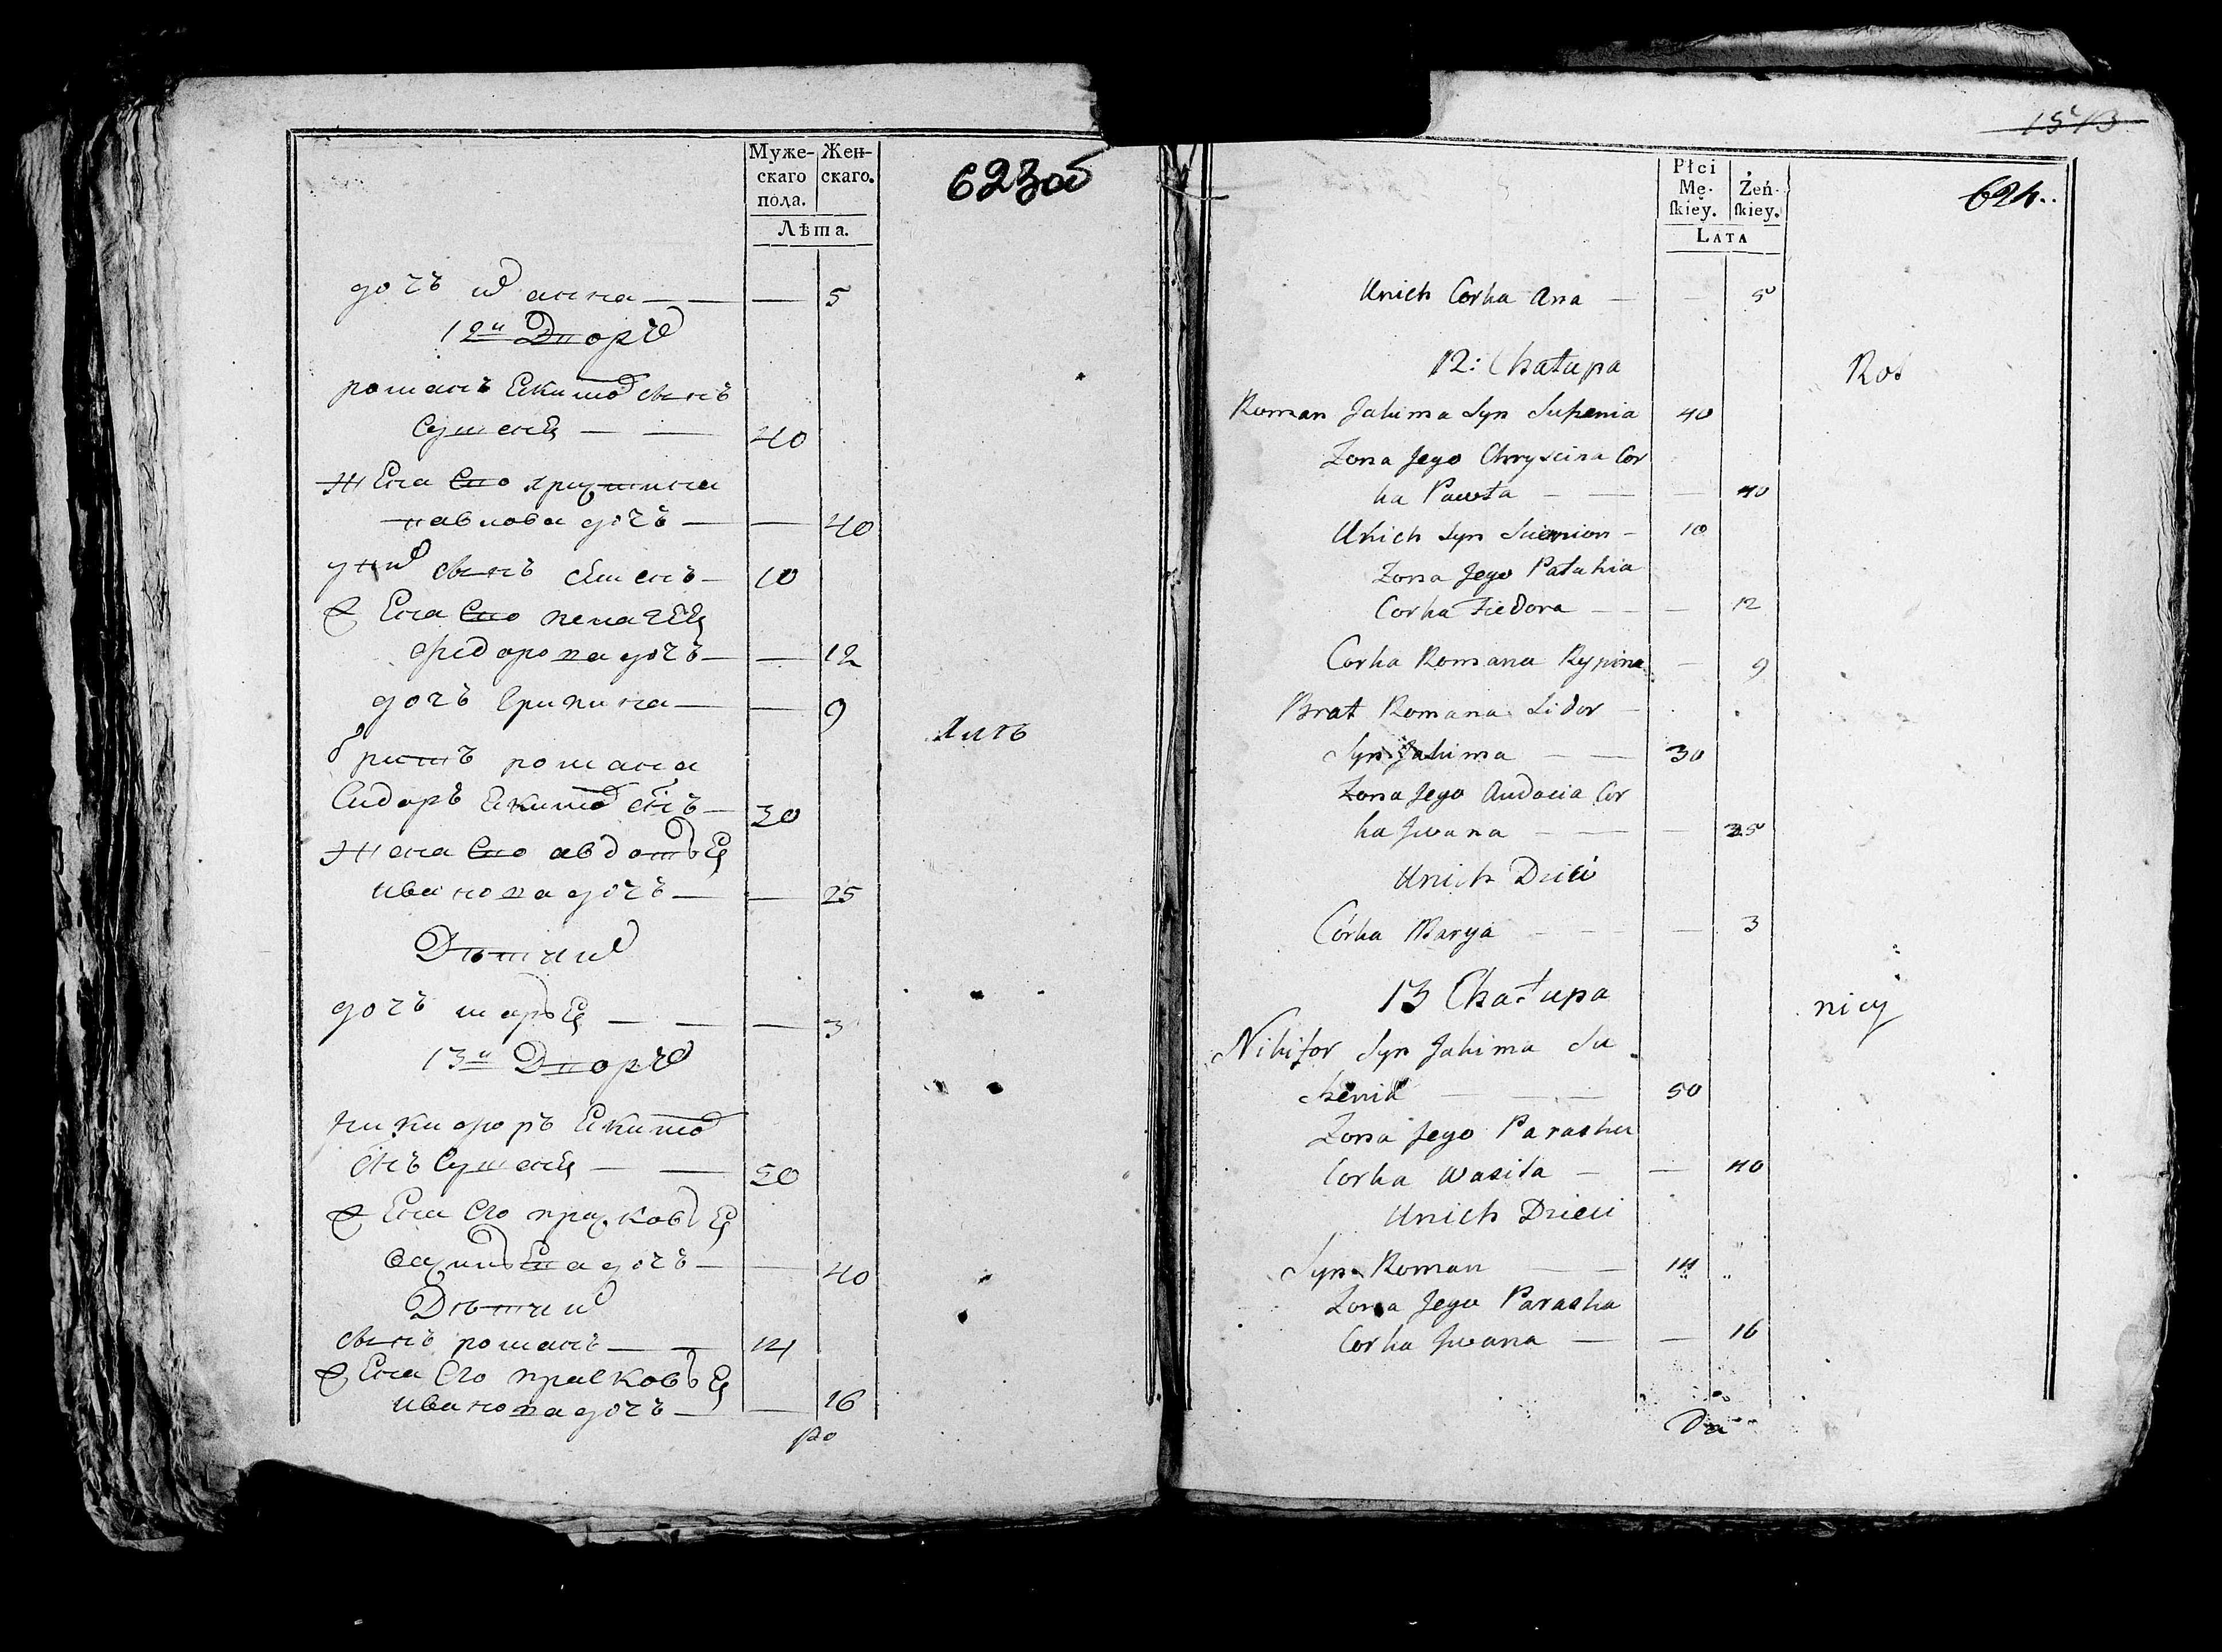 Муже-
скаго
пола.
Жен-
скаго.
Лѣта.
623об
дочъ анна — — — 5
12й Дворъ
романъ Екимов сынъ
Сушеня — — 40
жена Его христина
павлова дочъ — — 40
у них сынъ семенъ — 10
жена Его пелагея
федорова дочъ — — 12
дочъ Грипина — — 9
братъ романа
Сидоръ Екимов снъ — 30
жена Его авдотья
иванова дочъ — — 25
Дѣти их
дочъ марья — — — 3
13й Дворъ
никифоръ Екимов
снъ Сушеня — — 50
жена Его прасковья
васильева дочъ — — 40
Дѣти их
сынъ романъ — — 14
жена Его прасковья
иванова дочъ — — 16
1543
Płci
Mę-
ſkiey.
Żeń-
ſkiey.
Lata
624
Unich Corka Ana — — 5
12: Chałupa
Rob
Roman Jakima Syn Suszenia 40
Zona Jego Chryscina Cor
ka Pawła — — — 40
Unich Syn Siemion — 10
Zona Jego Pałahia
Corka Fiedora — — — 12
Corka Romana Rypina — 9
Brat Romana Sidor —
Syn Jakima — — 30
Zona Jego Audocia Cor
ka Jwana — — — 25
Unich Dzieci
Córka Marya — — — 3
13 Chałupa
nicy
Nikifor Syn Jakima Su
szenia — — — 50
Zona Jego Paraska
Corka Wasila — — 40
Unich Dzieci
Syn Roman — — 14
Zona Jego Paraska
Corka Jwana — — 16